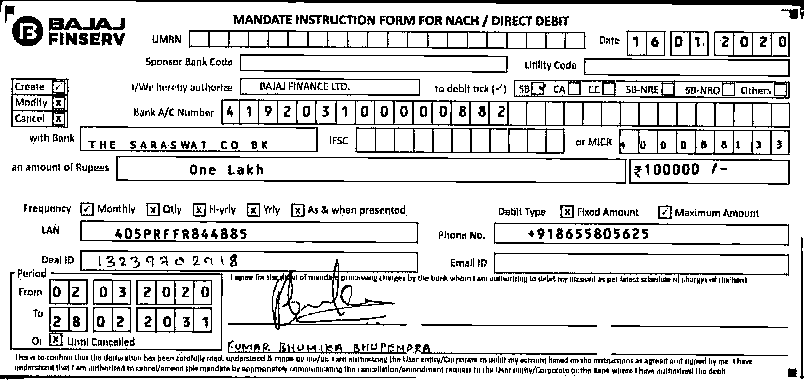 BAJAJ FINSERV
MANDATE INSTRUCTION FORM FOR NACH / DIRECT DEBIT
UMRN Date 16 01 2020
Sponsor Bank Code Utility Code
Create ✓ I/We hereby authorize BAJAJ FINANCE LTD. to debit tick (✓) SB ✓ CA CC SB-NRE SB-NRO Others
Modify x
Cancel x Bank A/C Number 419203100000882
with Bank THE SARASWAT CO BK IFSC or MICR 400088133
an amount of Rupees One Lakh ₹100000 /-
Frequency ✓ Monthly x Qtly x H-yrly x Yrly x As & when presented Debit Type x Fixed Amount ✓ Maximum Amount
LAN 405PRFFR844885 Phone No. +918655805625
Deal ID 13239702918 Email ID
Period I agree for the debit of mandate processing charges by the bank whom I am authorizing to debit my account as per latest schedule of charges of the bank
From 02 03 2020
To 28 02 2031
Or x Until Cancelled KUMAR BHUMIKA BHUPENDRA
This is to confirm that the declaration has been carefully read, understood & made by me/us. I am authorizing the User entity/Corporate to debit my account based on the instructions as agreed and signed by me. I have
understood that I am authorized to cancel/amend this mandate by appropriately communicating the cancellation/amendment request to the User entity/Corporate or the bank where I have authorized the debit